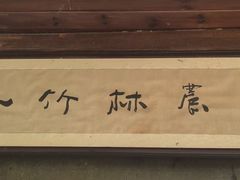 農林竹